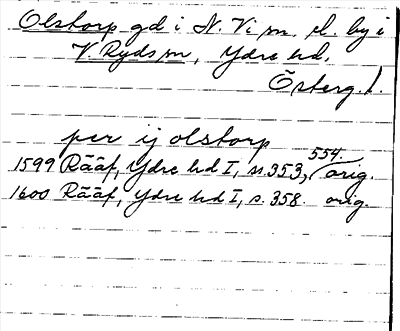 Olstorp gd i N. Vi sn. el. by i
V. Ryds sn, Ydre hd,
Österg. l.
per ij olstorp
1599 Rääf, Ydre hd I, s. 353, 554. orig.
1600 Rääf, Ydre hd I, s. 358. orig.